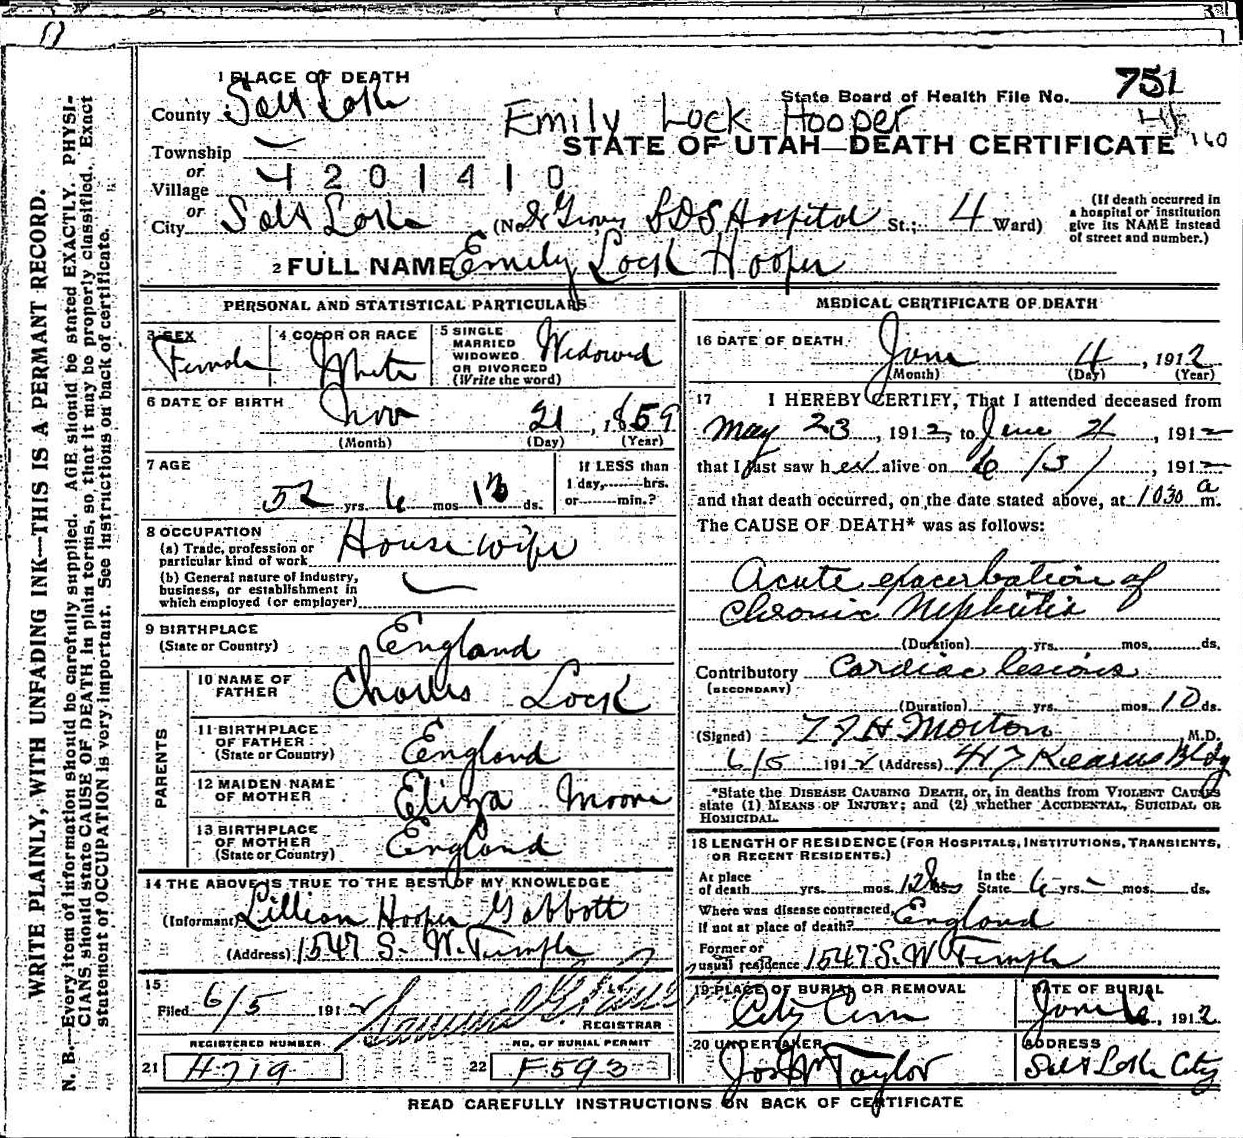 1 PLACE OF DEATH
County Salt Lake
State Board of Health File No. 751
Emily Lock Hooper
STATE OF UTAH—DEATH CERTIFICATE 160
Township
or
Village
4201410
or
City Salt Lake (No. Dr Groves LDS Hospital St.; 4 Ward)
(If death occurred in a hospital or institution give its NAME instead of street and number.)
2 FULL NAME Emily Lock Hooper
PERSONAL AND STATISTICAL PARTICULARS
3 SEX Female
4 COLOR OR RACE White
5 SINGLE MARRIED WIDOWED OR DIVORCED (Write the word) Widowed
6 DATE OF BIRTH Nov 21, 1859
(Month) (Day) (Year)
7 AGE 52 yrs. 6 mos 13 ds.
If LESS than 1 day, hrs. or min.?
8 OCCUPATION
(a) Trade, profession or particular kind of work House wife
(b) General nature of industry, business, or establishment in which employed (or employer)
9 BIRTHPLACE (State or Country) England
PARENTS
10 NAME OF FATHER Charles Lock
11 BIRTHPLACE OF FATHER (State or Country) England
12 MAIDEN NAME OF MOTHER Eliza Moore
13 BIRTHPLACE OF MOTHER (State or Country) England
14 THE ABOVE IS TRUE TO THE BEST OF MY KNOWLEDGE
(Informant) Lillian Hooper Gabbott
(Address) 1547 S. W. Temple
15
Filed 6/5 1912
REGISTRAR
REGISTERED NUMBER
21 H719
NO. OF BURIAL PERMIT
22 F593
MEDICAL CERTIFICATE OF DEATH
16 DATE OF DEATH June 4, 1912
(Month) (Day) (Year)
17 I HEREBY CERTIFY, That I attended deceased from
May 23, 1912, to June 4, 1912
that I last saw her alive on 6/3/, 1912
and that death occurred, on the date stated above, at 1030 a m.
The CAUSE OF DEATH* was as follows:
Acute exacerbation of
Chronic Nephritis
(Duration) yrs. mos. ds.
Contributory (SECONDARY) Cardiac lesions
(Duration) yrs. mos. 10 ds.
(Signed) Morton, M.D.
6/5 1912 (Address) 417 Kearns Bldg
*State the DISEASE CAUSING DEATH, or, in deaths from VIOLENT CAUSES state (1) MEANS OF INJURY; and (2) whether ACCIDENTAL, SUICIDAL OR HOMICIDAL.
18 LENGTH OF RESIDENCE (FOR HOSPITALS, INSTITUTIONS, TRANSIENTS, OR RECENT RESIDENTS.)
At place of death yrs. mos. 12 ds In the State 6 yrs. – mos. ds.
Where was disease contracted, if not at place of death? England
Former or usual residence 1547 S. W Temple
19 PLACE OF BURIAL OR REMOVAL City Cem
DATE OF BURIAL June 6, 1912
20 UNDERTAKER Jos Wm Taylor
ADDRESS Salt Lake City
READ CAREFULLY INSTRUCTIONS ON BACK OF CERTIFICATE
WRITE PLAINLY, WITH UNFADING INK—THIS IS A PERMANT RECORD.
N. B.—Every item of information should be carefully supplied. AGE should be stated EXACTLY. PHYSI-
CIANS should state CAUSE OF DEATH in plain terms, so that it may be properly classified. Exact
statement of OCCUPATION is very important. See instructions on back of certificate.